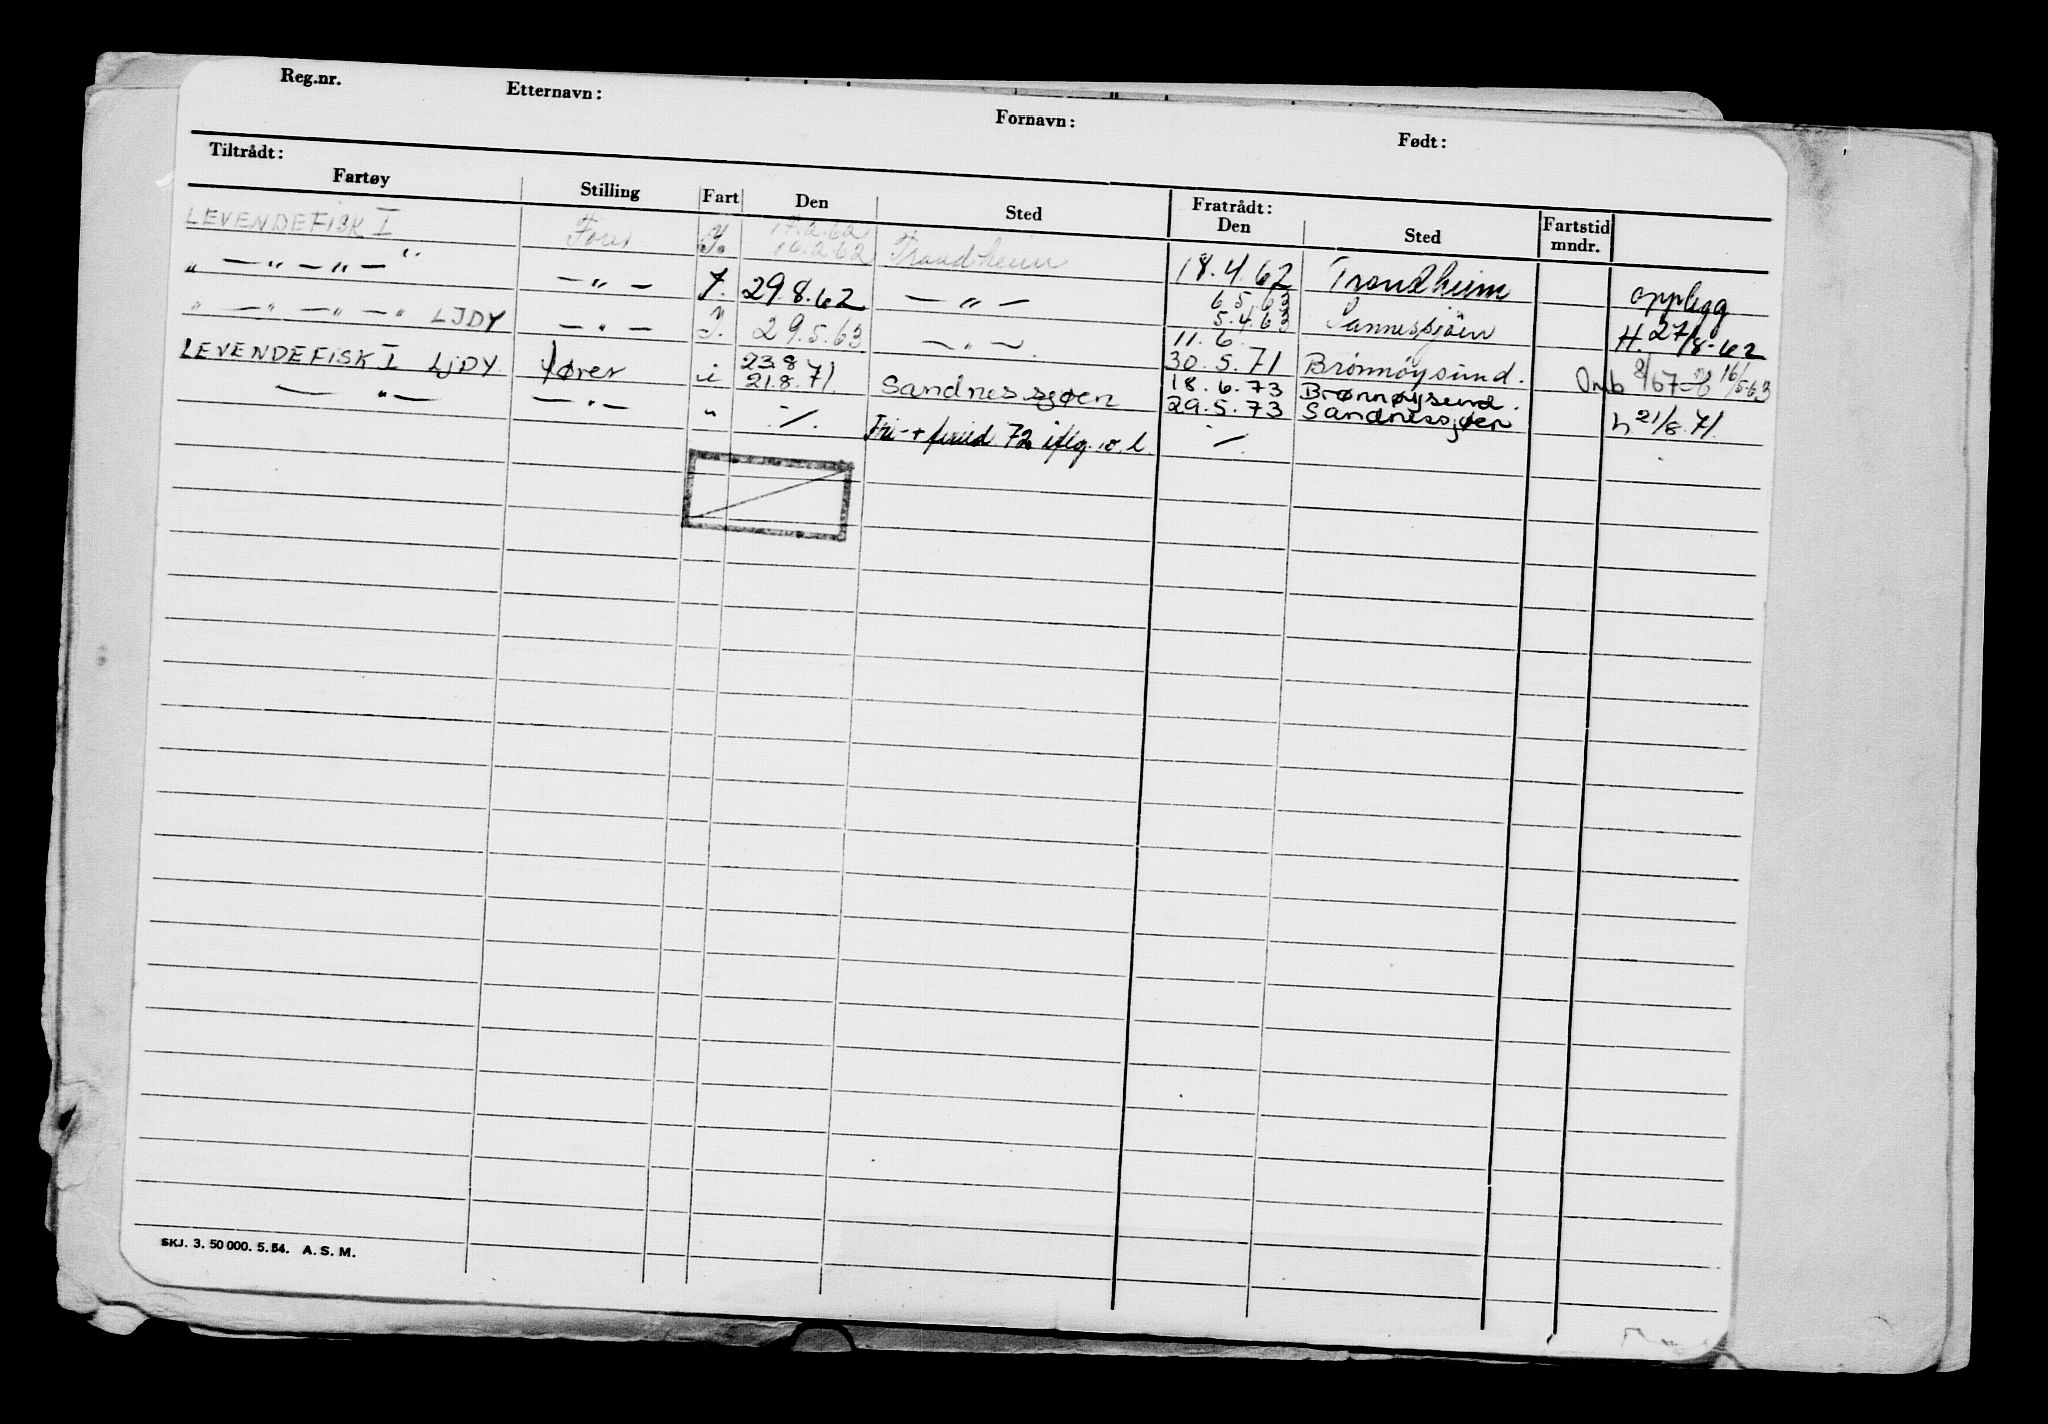 Reg.nr. Etternavn: Fornavn: Født:
Tiltrådt: Fratrådt:
Fartøy Stilling Fart Den Sted Den Sted Fartstid mndr.
17.2.62
LEVENDEFISK I Fører 16.2.62 Trondheim 18.4.62 Trondheim opplegg
6.5.63
„ — „ — „ — „ — „ — 29.8.62 — „ — 5.4.63 H. 27/8-62
„ — „ — „ — „ LJDY — „ — 29.5.63 — „ — 11.6.
30.5.71 Brønnøysund. Omb 8/67 16/5 63
23.8
LEVENDEFISK I LJDY fører i 21.8.71. Sandnessjøen 18.6.73 Brønnøysund.
29.5.73 Sandnessjøen h 21/8.71.
— „ — — „ — „ ·/. Fri-+ 72 iflg. ·/.
SKJ. 3. 50 000. 5. 54. A. S. M.